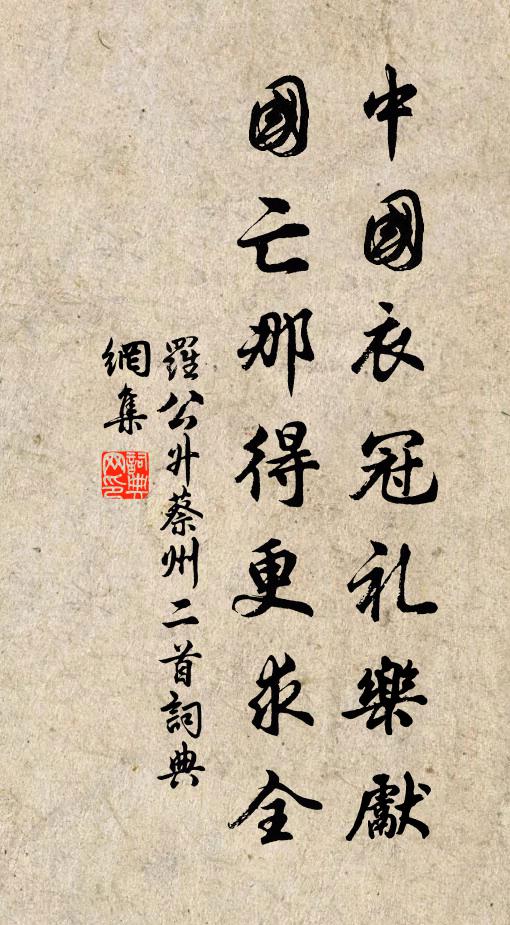 中國衣冠礼樂獻
國亡那得更求全
羅公升蔡州二首詞典
網集
詞典
网印